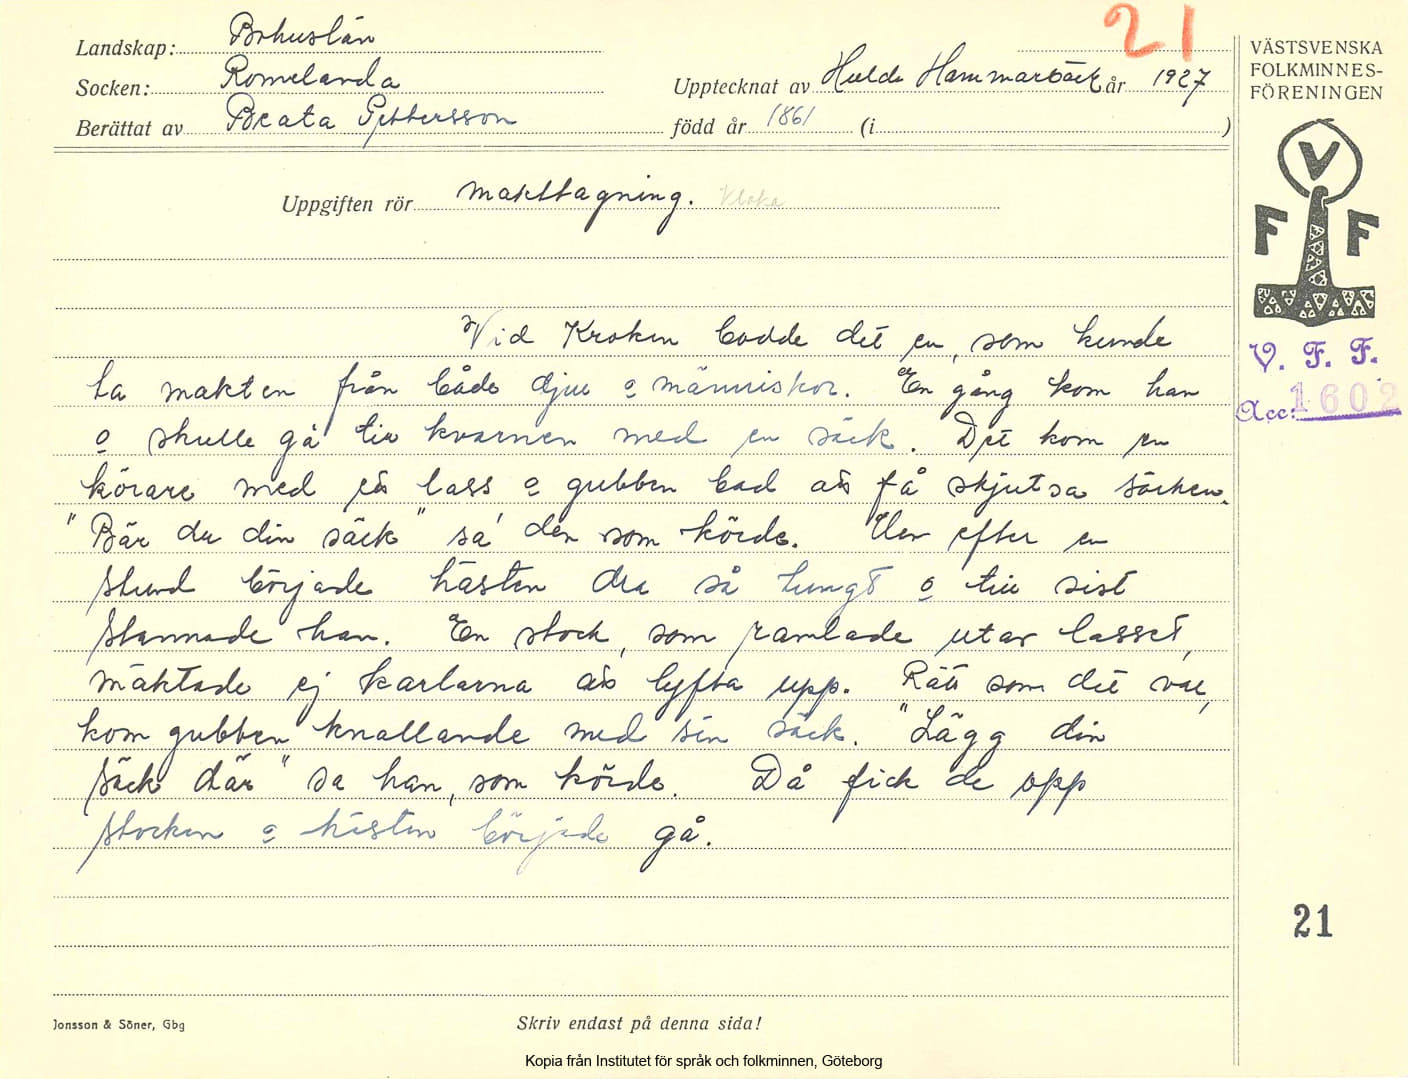 21
Landskap: Bohuslän
Socken: Romelanda
Upptecknat av Hulda Hammarbäck år 1927
Berättat av Beata Pettersson född år 1861 (i )
VÄSTSVENSKA
FOLKMINNES-
FÖRENINGEN
V
F F
V. F. F.
Acc: 1602
Uppgiften rör makttagning. Kloka
Vid Kroken bodde det en, som kunde
ta makten från både djur o människor. En gång kom han
o skulle gå till kvarnen med en säck. Det kom en
körare med ett lass o gubben bad att få skjutsa säcken.
"Bär du din säck" sa' den som körde. Men efter en
stund började hästen dra så tungt o till sist
stannade han. En stock, som ramlade utav lasset,
mäktade ej karlarna att lyfta upp. Rätt som det var,
kom gubben knallande med sin säck. "Lägg din
säck där" sa han, som körde. Då fick de opp
stocken o hästen började gå.
21
Jonsson & Söner, Gbg
Skriv endast på denna sida!
Kopia från Institutet för språk och folkminnen, Göteborg